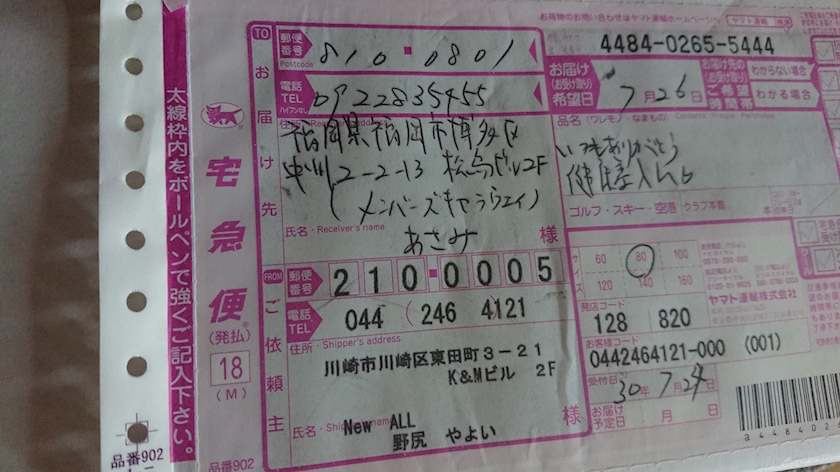 お荷物のお問い合わせはヤマト運輸ホームページへ ヤマト運輸 検索
4484-0265-5444
TO お届け先
郵便番号 Postcode 810-0801
電話 TEL 0922835455
ハイフンなし
住所・Receiver's address
福岡県福岡市博多区
中州2-2-13 松島ビル2F
(メンバーズキャラウェイ)
氏名・Receiver's name
あさみ 様
お届け(お受け取り)希望日 7月26日
お届け先のご希望時間帯
わからない場合
わかる場合
品名(ワレモノ・なまもの)
いつもありがとう
ゴルフ・スキー・空港 クラブ本数
サイズ 60 80 100
120 140 160
ヤマト運輸株式会社
発店コード
128 820
お客様コード
0442464121-000 (001)
受付日 30年7月24日
お届け予定日 月 日
FROM ご依頼主
郵便番号 210-0005
電話 TEL 044 ( 246 4121
住所・Shipper's address
川崎市川崎区東田町3-21
K&Mビル 2F
氏名 New ALL
野尻 やよい 様
宅急便
(発払)
18
(M)
太線枠内をボールペンで強くご記入下さい。
品番902
品番902